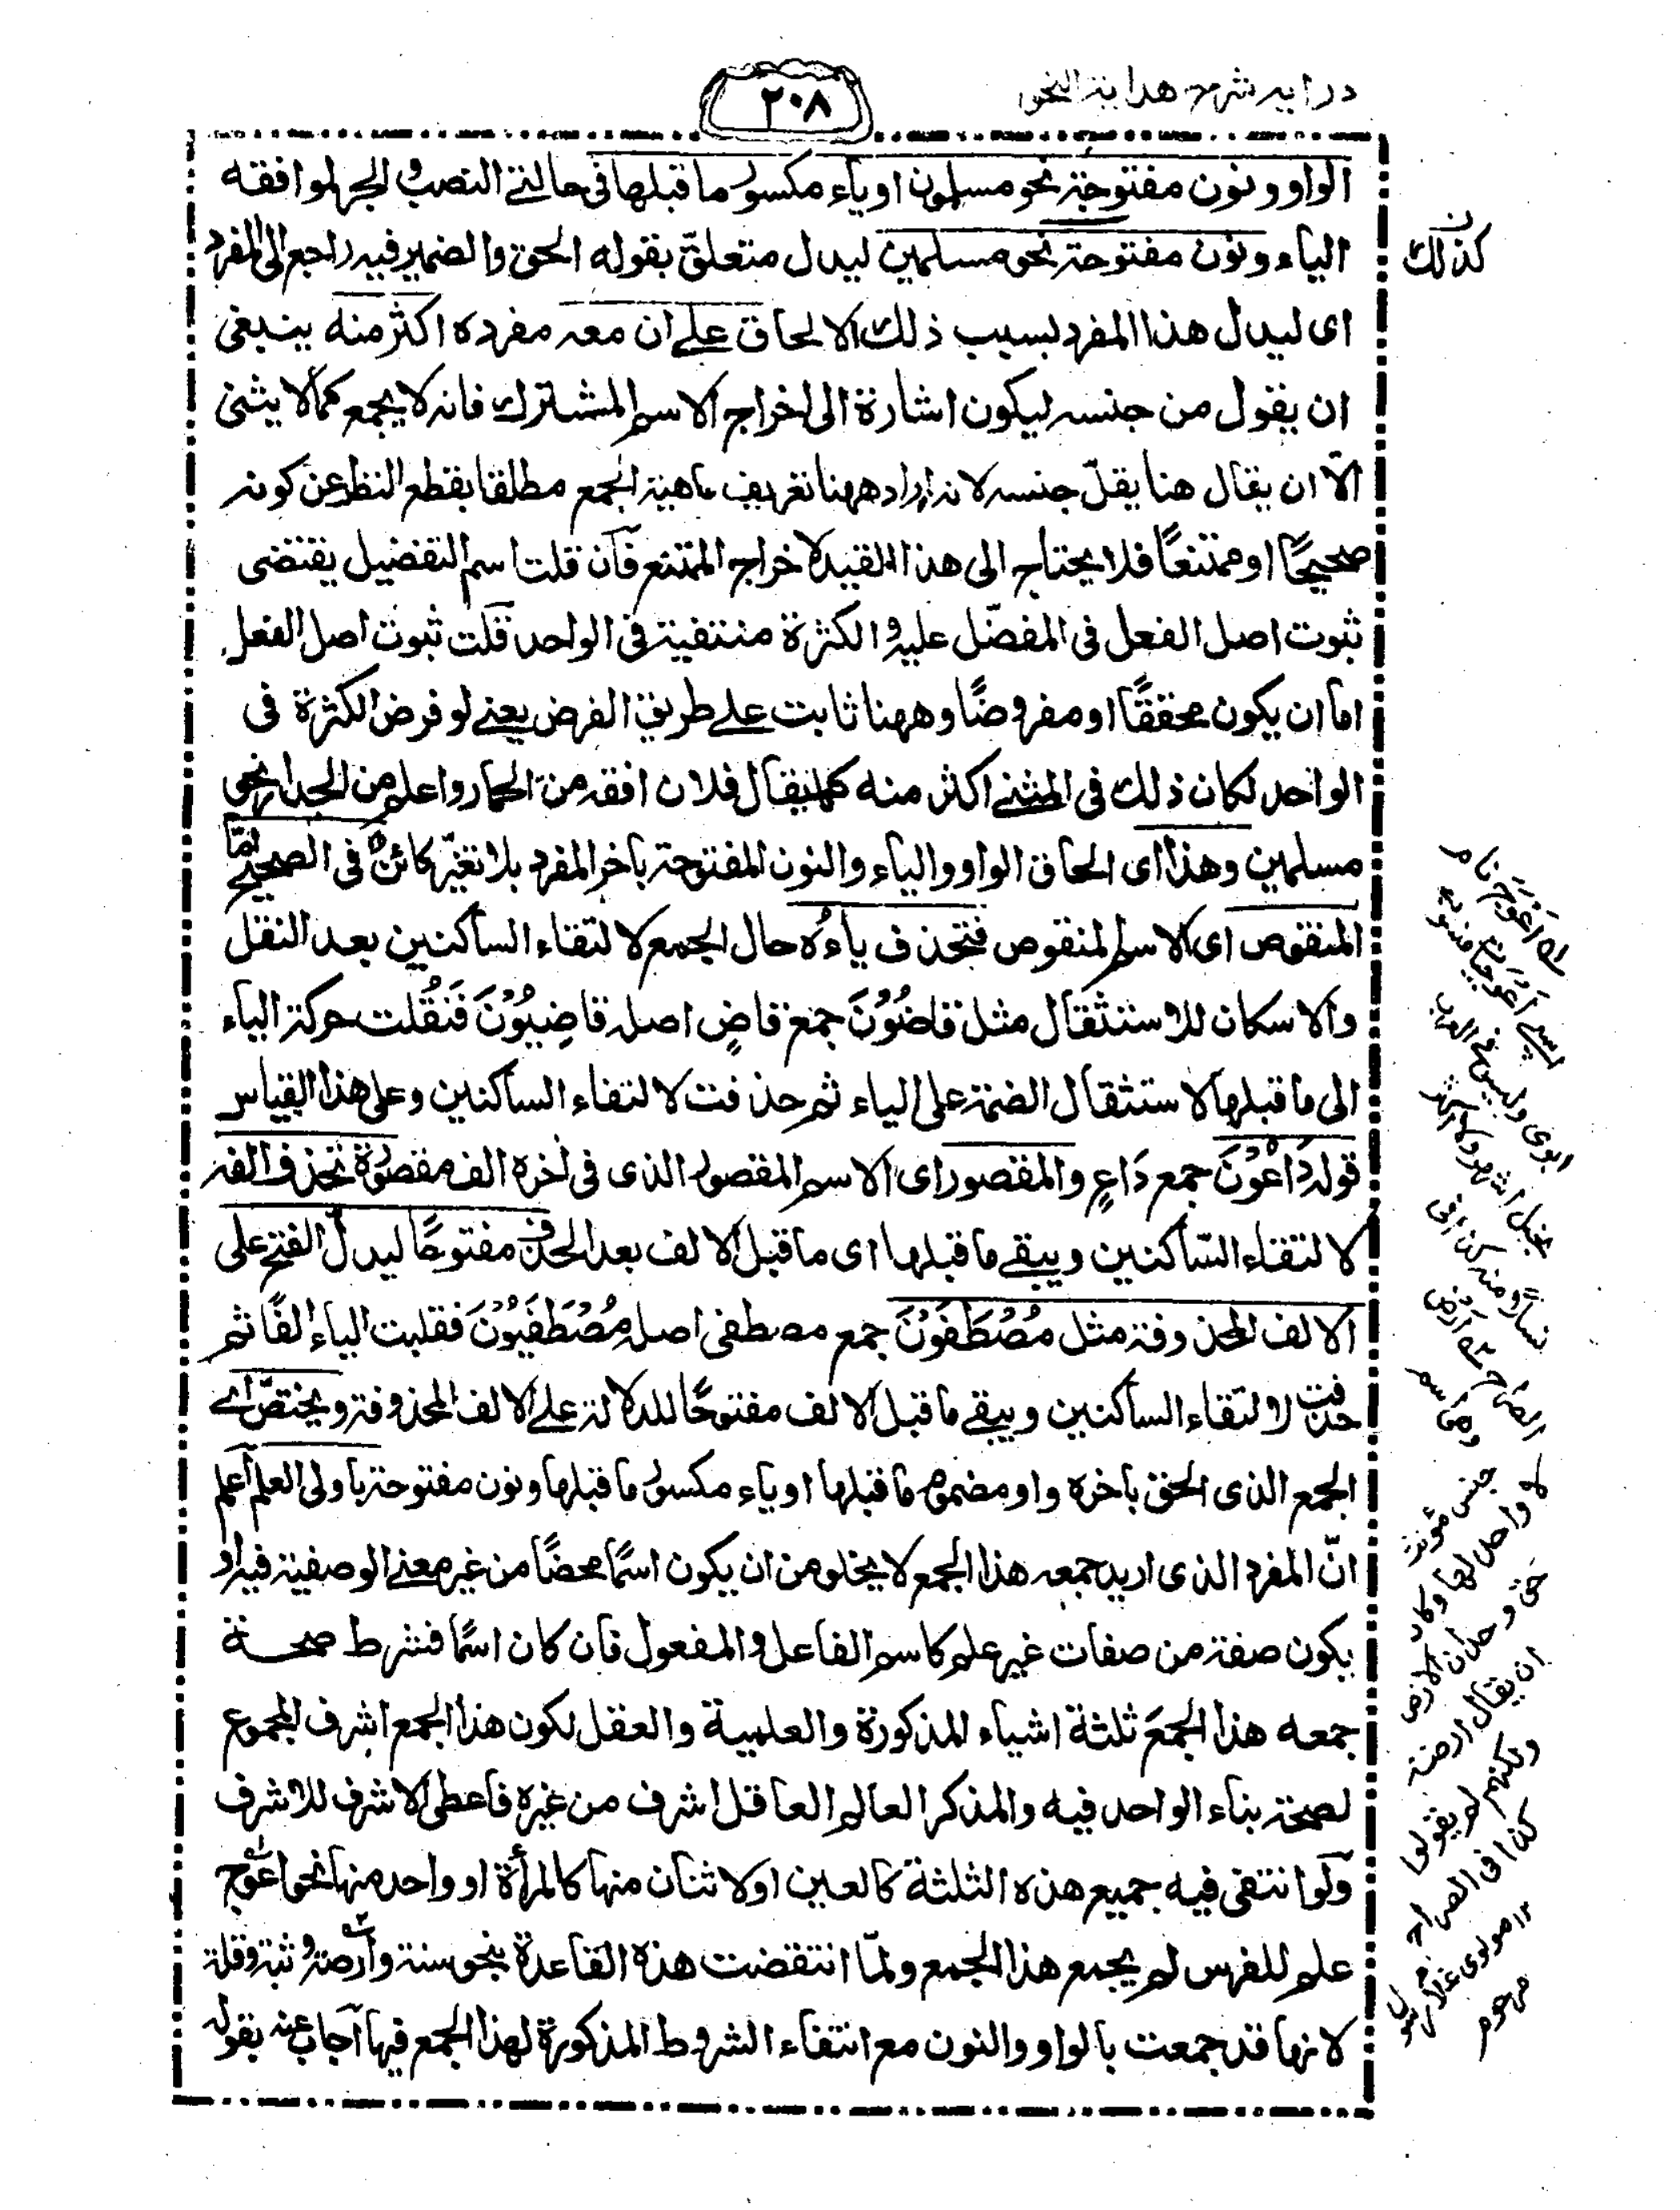 درايه شرح هداية النحو
٢٠٨
الواو ونون مفتوحة نحو مسلمون او ياء مكسور ما قبلها فى حالتى النصب و الجر لموافقه
الياء ونون مفتوحة نحو مسلمين ليدل متعلق بقوله الحق والضمير فيه راجع الى المفرد
اى ليدل هذا المفرد بسبب ذلك الالحاق على ان معه مفرده اكثر منه ينبغى
ان يقول من جنسه ليكون اشارة الى اخراج الاسم المشترك فانه لا يجمع كما لا يثنى
الّا ان يقال هنا يقلّ جنسه لانه اراد ههنا تعريف ماهية الجمع مطلقا بقطع النظر عن كونه
صحيحًا او ممتنعًا فلا يحتاج الى هذا القيد لاخراج الممتنع فان قلت اسم التفضيل يقتضى
ثبوت اصل الفعل فى المفضّل عليه و الكثرة منتفية فى الواحد قلت ثبوت اصل الفعل
اما ان يكون محققًا او مفروضًا وههنا ثابت على طريق الفرض يعنى لو فرض الكثرة فى
الواحد لكان ذلك فى المثنى اكثر منه كما يقال فلان افقه من الحمار واعلم من الجدار نحو
مسلمين وهذا اى الحاق الواو والياء والنون المفتوحة باخر المفرد بلا تغيّر كائن فى الصحيح امّا
المنقوص اى الاسم المنقوص فتحذف ياءُه حال الجمع لالتقاء الساكنين بعد النقل
والاسكان للاستثقال مثل قاضُوْنَ جمع قاضٍ اصله قاضِيُوْنَ فَنُقلت حركة الياء
الى ما قبلها لاستثقال الضمة على الياء ثم حذفت لالتقاء الساكنين وعلى هذا القياس
قوله دَاعُوْنَ جمع دَاعٍ والمقصور اى الاسم المقصور الذى فى اخره الف مقصورة تحذف الفه
لالتقاء السّاكنين ويبقى ما قبلها اى ما قبل الالف بعد الحذف مفتوحًا ليدلّ الفتح على
الالف المحذوفة مثل مُصْطَفَوْنَ جمع مصطفى اصله مُصْطَفَيُوْنَ فقلبت الياء الفًا ثم
حذفت لالتقاء الساكنين ويبقى ما قبل الالف مفتوحًا للدلالة على الالف المحذوفة ويختصّ اى
الجمع الذى الحق باخره واو مضموم ما قبلها او ياء مكسور ما قبلها ونون مفتوحة باولى العلم اعلم
انّ المفرد الذى اريد جمعه هذا الجمع لا يخلو من ان يكون اسمًا محضًا من غير معنى الوصفية فيه او
يكون صفة من صفات غير علم كاسم الفاعل و المفعول فان كان اسمًا فشرط صحة
جمعه هذا الجمع ثلثة اشياء المذكورة والعلمية والعقل لكون هذا الجمع اشرف الجموع
لصحة بناء الواحد فيه والمذكر العالم العاقل اشرف من غيره فاعطى الاشرف للاشرف
ولو انتفى فيه جميع هذه الثلثة كالعين او لاثنان منها كالمرأة او واحد منها نحو اعوج
علم للفرس لم يجمع هذا الجمع ولمّا انتقضت هذه القاعدة بنحو سنة وارضة و ثبة وقلة
لانها قد جمعت بالواو والنون مع انتفاء الشروط المذكورة لهذا الجمع فيها اجاب عنه بقوله
كذلك
جنس مونث
لا واحد لها وكان
ان يقال ارضة
ولكنهم لم يقولوا
كذا فى الصراح
مرحوم